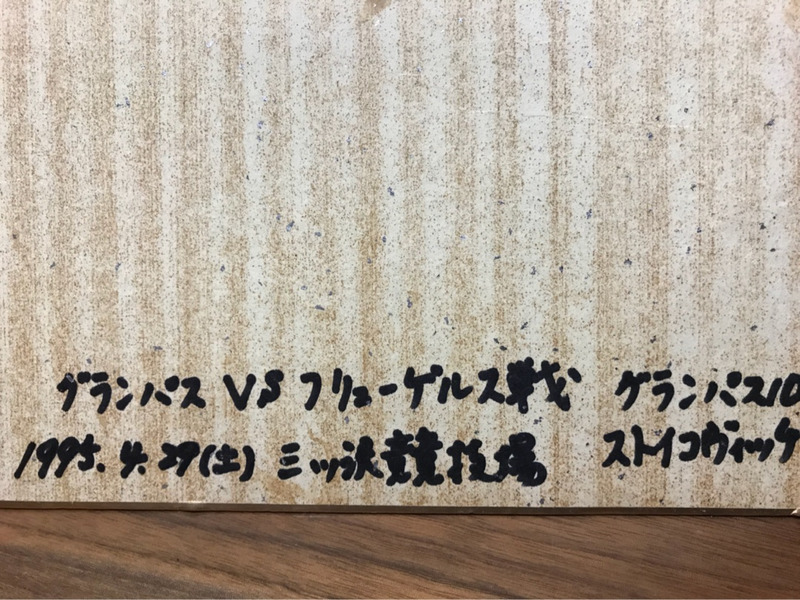 グランパス VS フリューゲルス戦
1995.4.29(土) 三ッ沢競技場
グランパス10
ストイコヴィッチ